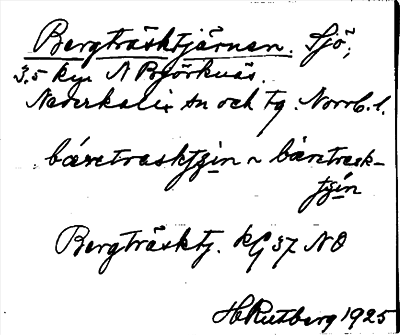 Bergträsktjärnen. Sjö,
3.5 km N Björknäs.
Nederkalix sn och tg. Norrb. l.
bæretrasktjɛ̨in ~ bæretrask-
tjɛ̨in
Bergträsktj. kG 37 NO
H Rutberg 1925